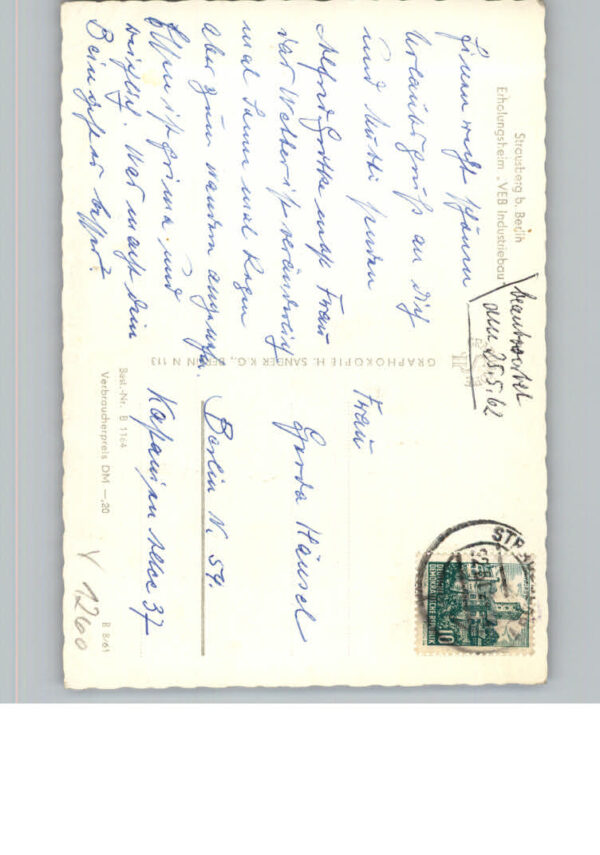 Strausberg b. Berlin
Erholungsheim „VEB Industriebau"
Einen recht schönen
Urlaubsgruß an Dich
und Mutti senden
Alfred Gotte nebst Frau
das Wetter ist veränderlich
mal Sonne und Regen
aber zum wandern angenehm.
Essen ist prima und
reichlich. Was macht dein
Bein geht es besser?
beantwortet
am 25.5.62
GRAPHOKOPIE H. SANDER K.G., BERLIN N 113
Best.-Nr. B 1164
Verbraucherpreis DM –,20
Frau
Gerda Hänsel
Berlin N. 54.
Kastanien Allee 37
STRAUSBERG
DEUTSCHE
DEMOKRATISCHE REPUBLIK
10
Y 1260
B 8/61